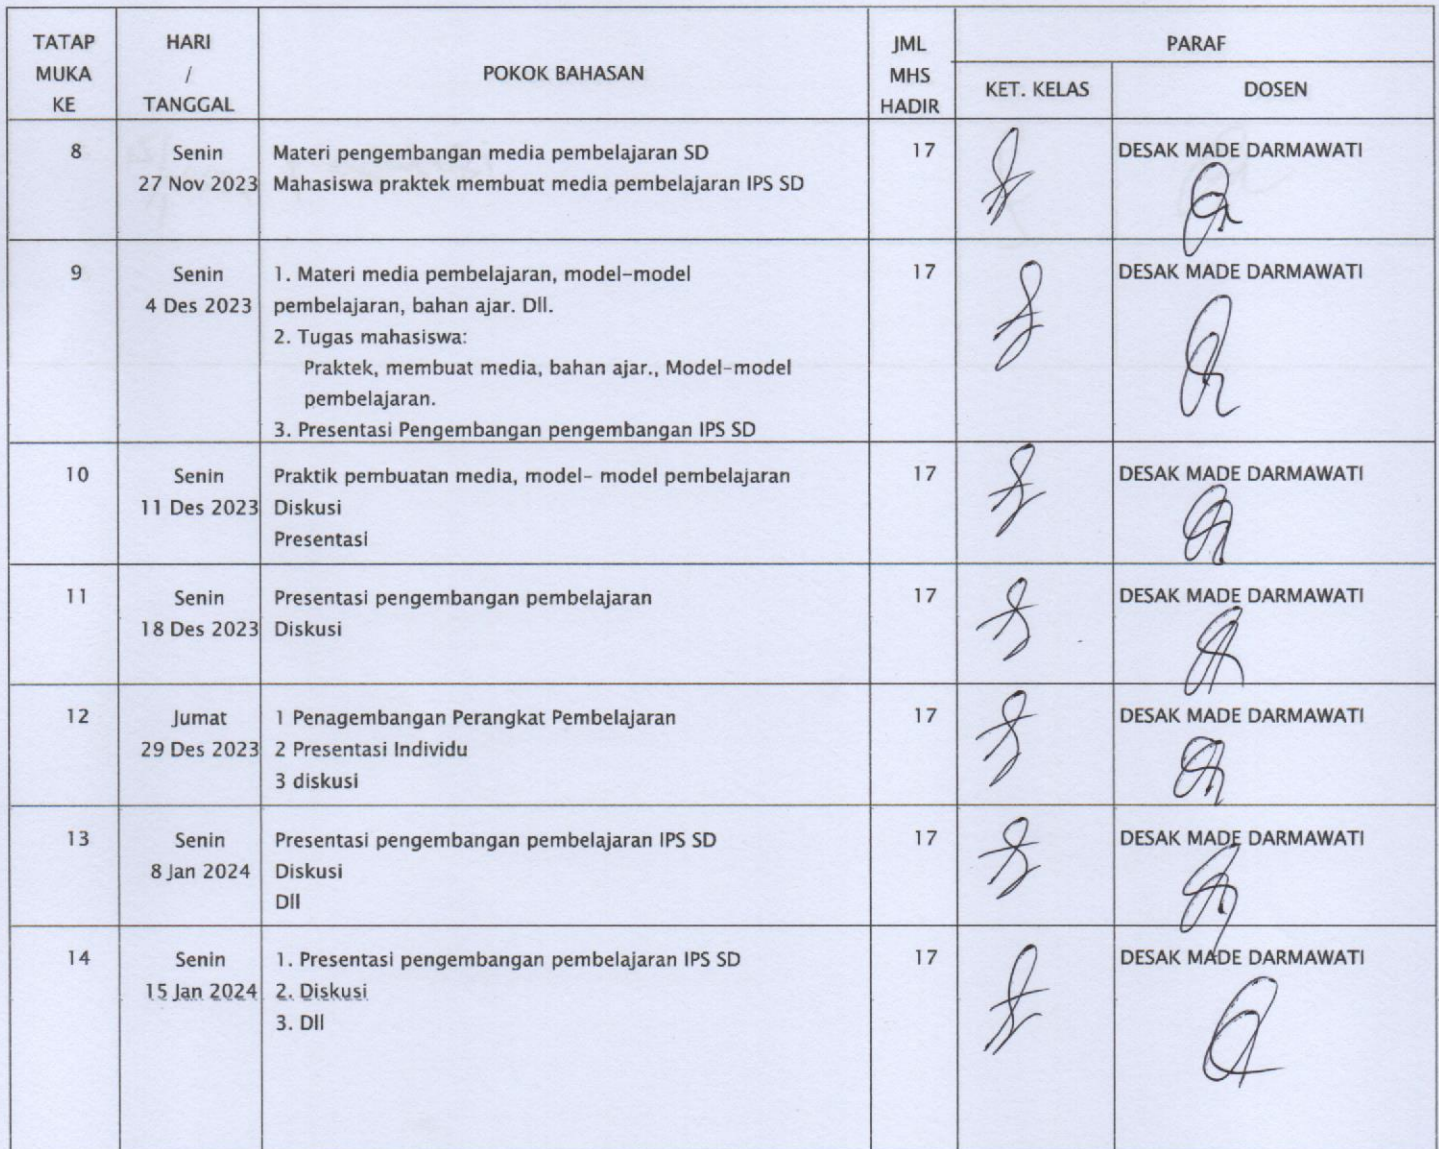 TATAP MUKA KE
HARI / TANGGAL
POKOK BAHASAN
JML MHS HADIR
PARAF
KET. KELAS
DOSEN
8
Senin
27 Nov 2023
Materi pengembangan media pembelajaran SD
Mahasiswa praktek membuat media pembelajaran IPS SD
17
DESAK MADE DARMAWATI
9
Senin
4 Des 2023
1. Materi media pembelajaran, model-model
pembelajaran, bahan ajar. Dll.
2. Tugas mahasiswa:
Praktek, membuat media, bahan ajar., Model-model
pembelajaran.
3. Presentasi Pengembangan pengembangan IPS SD
17
DESAK MADE DARMAWATI
10
Senin
11 Des 2023
Praktik pembuatan media, model- model pembelajaran
Diskusi
Presentasi
17
DESAK MADE DARMAWATI
11
Senin
18 Des 2023
Presentasi pengembangan pembelajaran
Diskusi
17
DESAK MADE DARMAWATI
12
Jumat
29 Des 2023
1 Penagembangan Perangkat Pembelajaran
2 Presentasi Individu
3 diskusi
17
DESAK MADE DARMAWATI
13
Senin
8 Jan 2024
Presentasi pengembangan pembelajaran IPS SD
Diskusi
Dll
17
DESAK MADE DARMAWATI
14
Senin
15 Jan 2024
1. Presentasi pengembangan pembelajaran IPS SD
2. Diskusi
3. Dll
17
DESAK MADE DARMAWATI